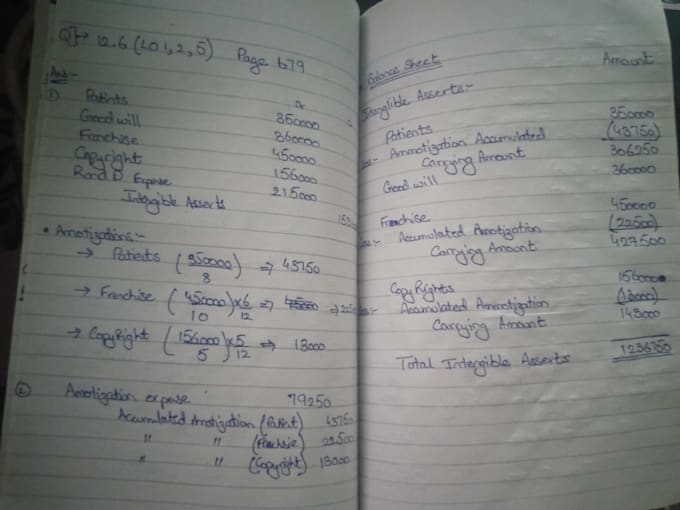 Q]→ 12.6 (LO 1, 2, 5) Page 679
Ans:-
① Patents 350000
Good will 360000
Franchise 450000
Copyright 156000
R and D Expense 215000
Intengible Asserts
• Amotizations:-
→ Patiects (350000/8) ⇒ 43750
→ Franchise (450000/10) × 6/12 ⇒ 45000 ⇒
→ CopyRight (156000/5) × 5/12 ⇒ 13000
② Amotization expense 79250
Accumulated Amotization (Patient) 43750
" " (Franchsie) 22500
" " (Copyright) 13000
Balance Sheet Amount
Intenglible Asserts:-
Patients 350000
Ammotization Accumulated (43750)
Carrying Amount 306250
Good will 360000
Franchise 450000
Accumulated Amotization (22500)
Carrying Amount 427500
CopyRights 156000
Acaumulated Ammotization (13000)
Carrying Amount 143000
Total Intergible Asserts 1236750